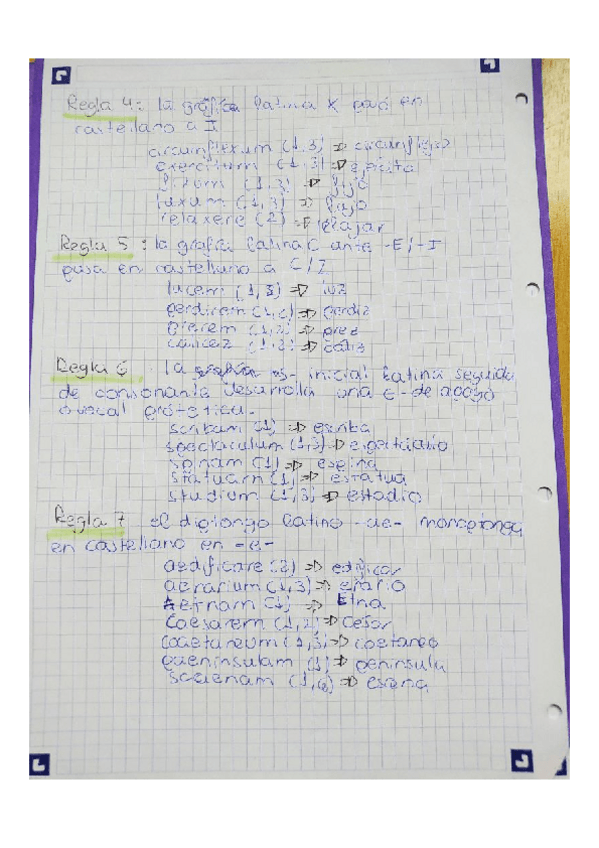 Regla 4: la gráfica latina X pasó en
castellano a I
circunflexum (1,3) ⇒ circunflejo
exercitum (1,3) ⇒ ejército
fixum (1,3) ⇒ fijó
luxum (1,3) ⇒ lujó
relaxere (2) ⇒ relajar
Regla 5: la grafía latina C ante -E/-I
pasa en castellano a C/Z
lucem (1,3) ⇒ luz
perdicem ⇒ perdiz
⇒ prez
⇒ cáliz
Regla 6 la s- inicial latina seguida
de consonante desarrolla una E- de apoyo
o vocal protética.
scribam (1) ⇒ escriba
spectaculum (1,3) ⇒
spinam (1) ⇒ espina
statuam (1) ⇒ estatua
studium (1,3) ⇒ estadio
Regla 7 el diptongo latino -ae- monoptonga
en castellano en -e-
aedificare (2) ⇒ edificar
aerarium (1,3) ⇒ erario
Aetnam (1) ⇒ Etna
Caesarem (1,2) ⇒ César
⇒ coetaneo
paeninsulam (1) ⇒ peninsula
scaenam (1,6) ⇒ escena